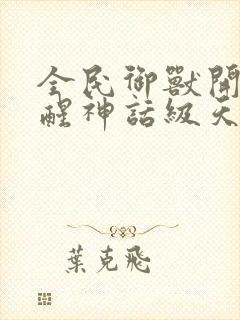 全民御獸開
醒神話級天
葉克飛